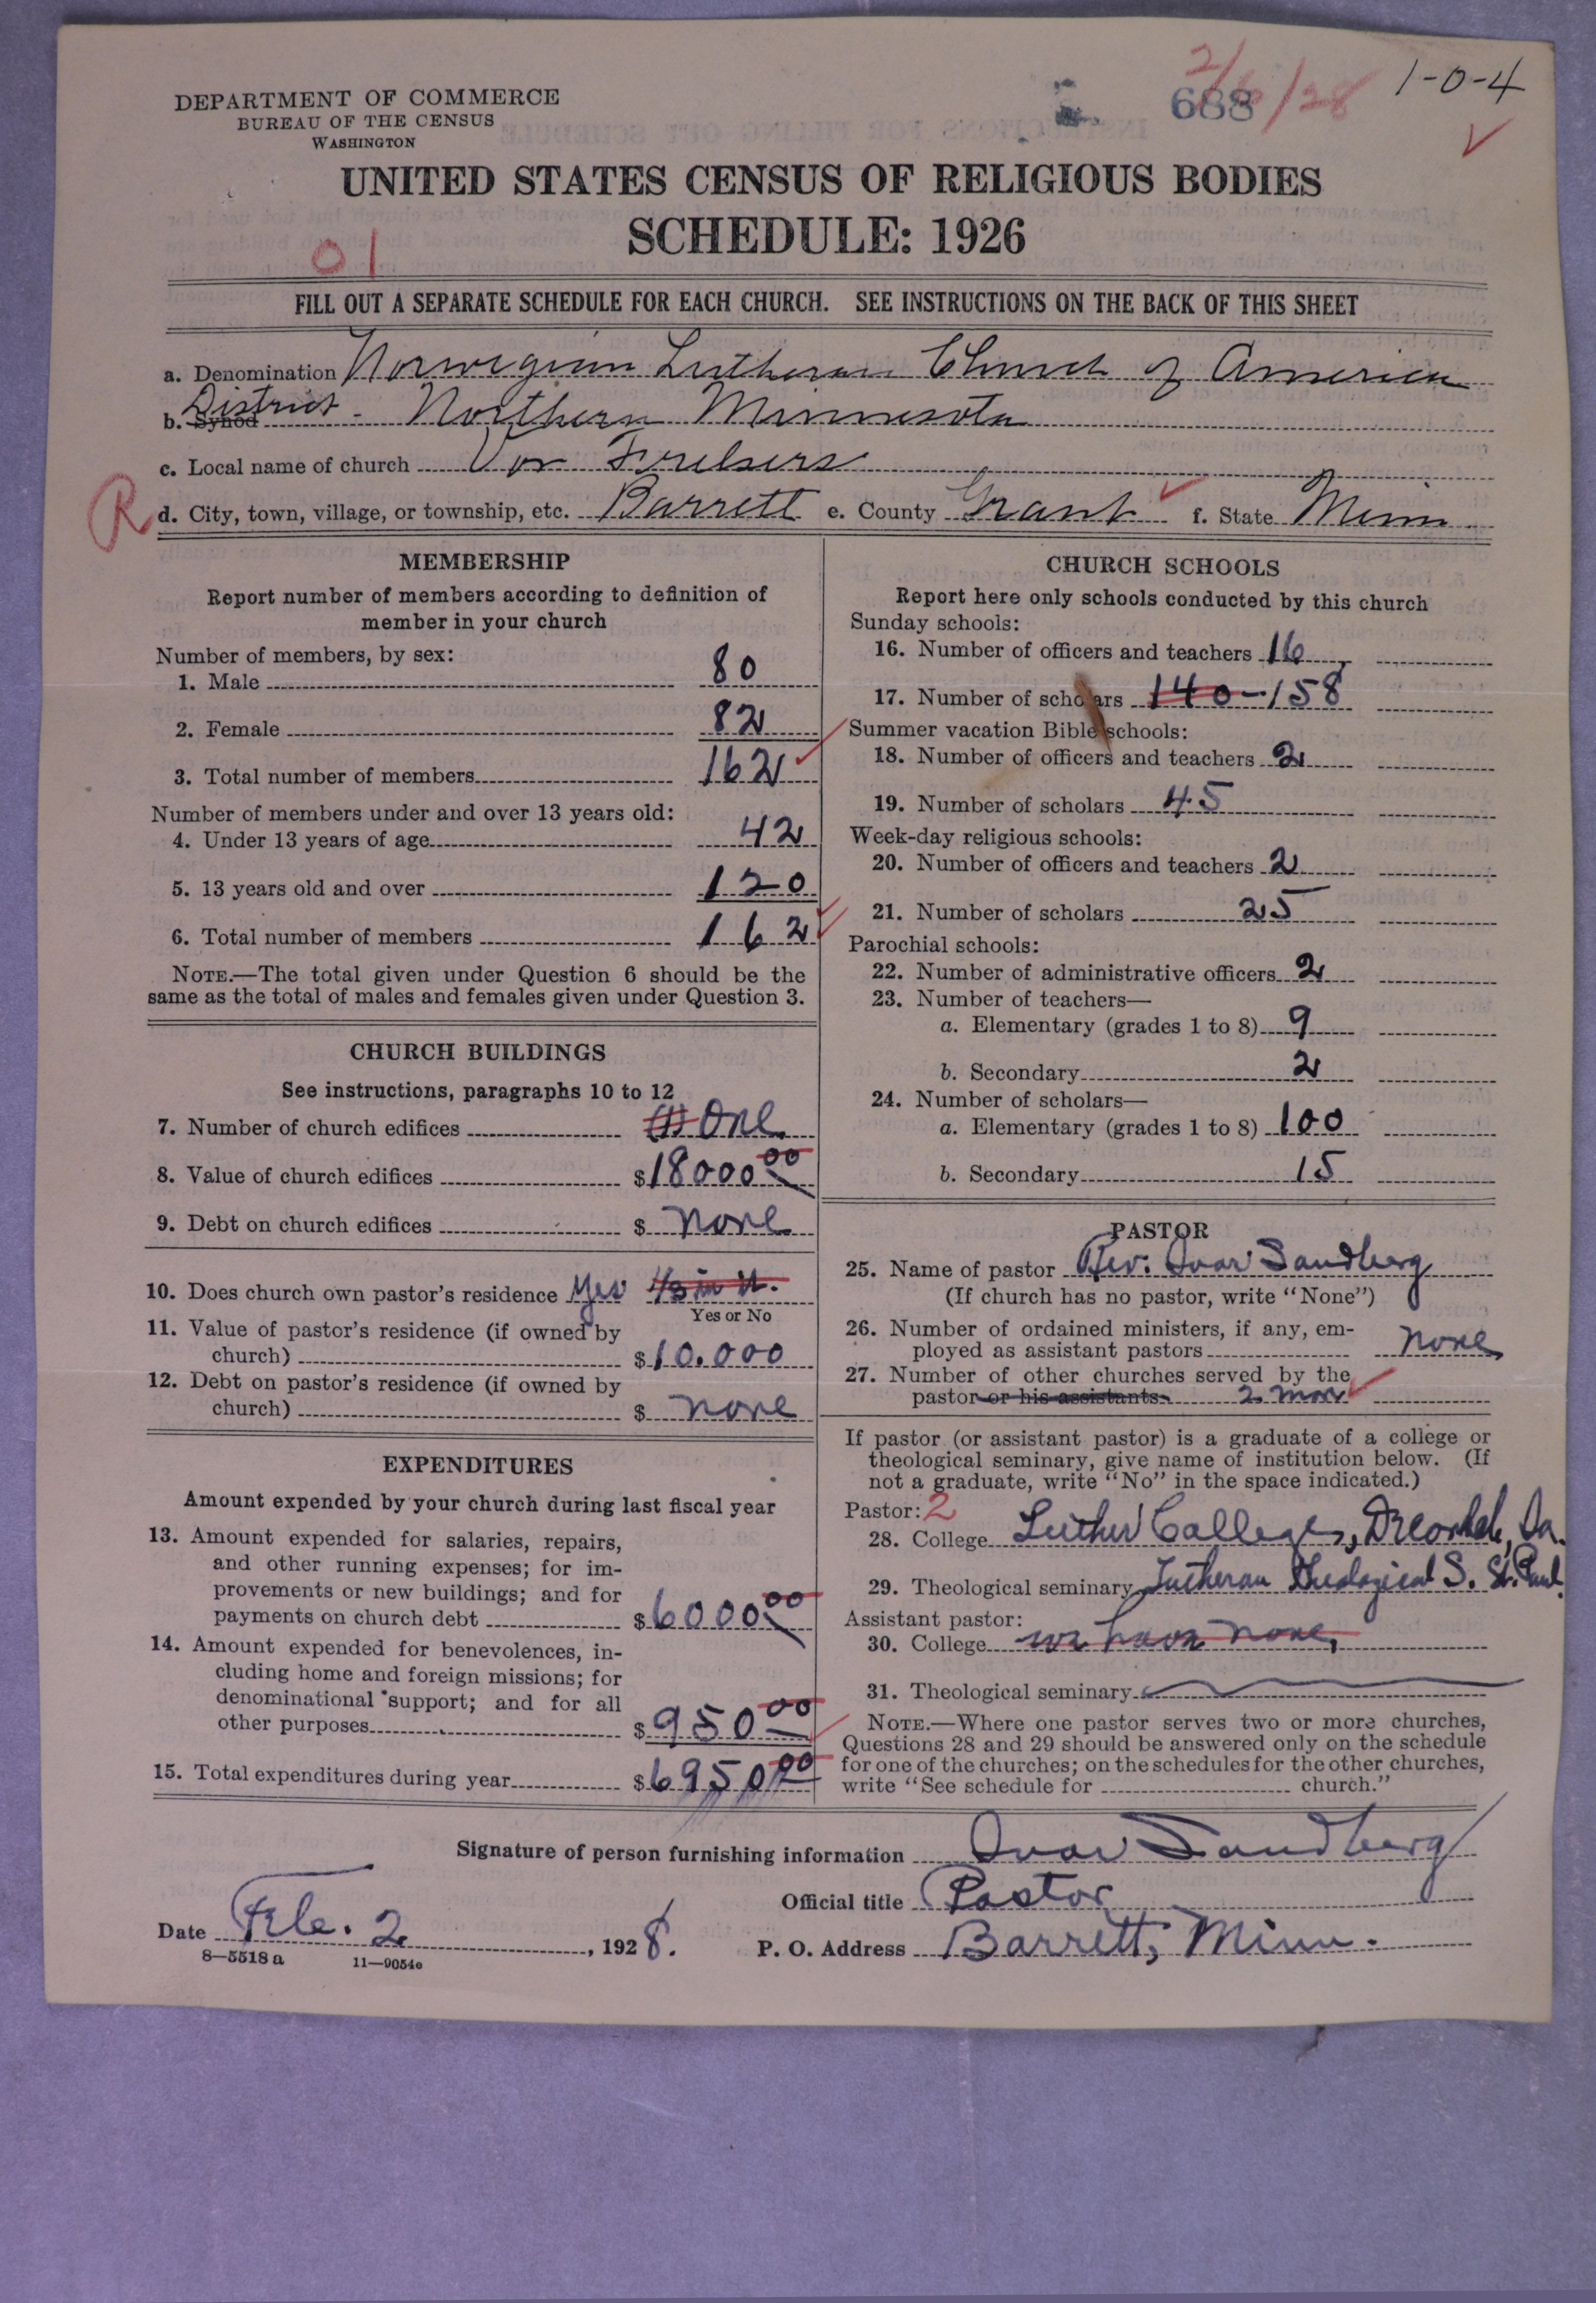 DEPARTMENT OF COMMERCE
BUREAU OF THE CENSUS
WASHINGTON
688
2/6/28
1-0-4
UNITED STATES CENSUS OF RELIGIOUS BODIES
SCHEDULE: 1926
01
FILL OUT A SEPARATE SCHEDULE FOR EACH CHURCH. SEE INSTRUCTIONS ON THE BACK OF THIS SHEET
a. Denomination Norwegian Lutheran Church of America
b. Synod District - Northern Minnesota
c. Local name of church Vor Frelsers
R
d. City, town, village, or township, etc. Barrett e. County Grant f. State Minn.
MEMBERSHIP
Report number of members according to definition of
member in your church
Number of members, by sex:
1. Male 80
2. Female 82
3. Total number of members 162
Number of members under and over 13 years old:
4. Under 13 years of age 42
5. 13 years old and over 120
6. Total number of members 162
NOTE.—The total given under Question 6 should be the
same as the total of males and females given under Question 3.
CHURCH BUILDINGS
See instructions, paragraphs 10 to 12
7. Number of church edifices (1) One
8. Value of church edifices $18000 00
9. Debt on church edifices $ none
10. Does church own pastor's residence yes 1/3 in it.
Yes or No
11. Value of pastor's residence (if owned by
church) $10.000
12. Debt on pastor's residence (if owned by
church) $ none
EXPENDITURES
Amount expended by your church during last fiscal year
13. Amount expended for salaries, repairs,
and other running expenses; for im-
provements or new buildings; and for
payments on church debt $6000 00
14. Amount expended for benevolences, in-
cluding home and foreign missions; for
denominational support; and for all
other purposes $950 00
15. Total expenditures during year $6950 00
CHURCH SCHOOLS
Report here only schools conducted by this church
Sunday schools:
16. Number of officers and teachers 16
17. Number of scholars 140-158
Summer vacation Bible schools:
18. Number of officers and teachers 2
19. Number of scholars 45
Week-day religious schools:
20. Number of officers and teachers 2
21. Number of scholars 25
Parochial schools:
22. Number of administrative officers 2
23. Number of teachers—
a. Elementary (grades 1 to 8) 9
b. Secondary 2
24. Number of scholars—
a. Elementary (grades 1 to 8) 100
b. Secondary 15
PASTOR
25. Name of pastor Rev. Ivar Sandberg
(If church has no pastor, write "None")
26. Number of ordained ministers, if any, em-
ployed as assistant pastors none
27. Number of other churches served by the
pastor or his assistants 2 more
If pastor (or assistant pastor) is a graduate of a college or
theological seminary, give name of institution below. (If
not a graduate, write "No" in the space indicated.)
Pastor: 2
28. College Luther College, Decorah, Ia.
29. Theological seminary Lutheran Theological S. St. Paul.
Assistant pastor:
30. College we have none,
31. Theological seminary
NOTE.—Where one pastor serves two or more churches,
Questions 28 and 29 should be answered only on the schedule
for one of the churches; on the schedules for the other churches,
write "See schedule for church."
Signature of person furnishing information Ivar Sandberg
Official title Pastor
Date Feb. 2, 1928.
P. O. Address Barrett, Minn.
8—5518 a 11—9054e